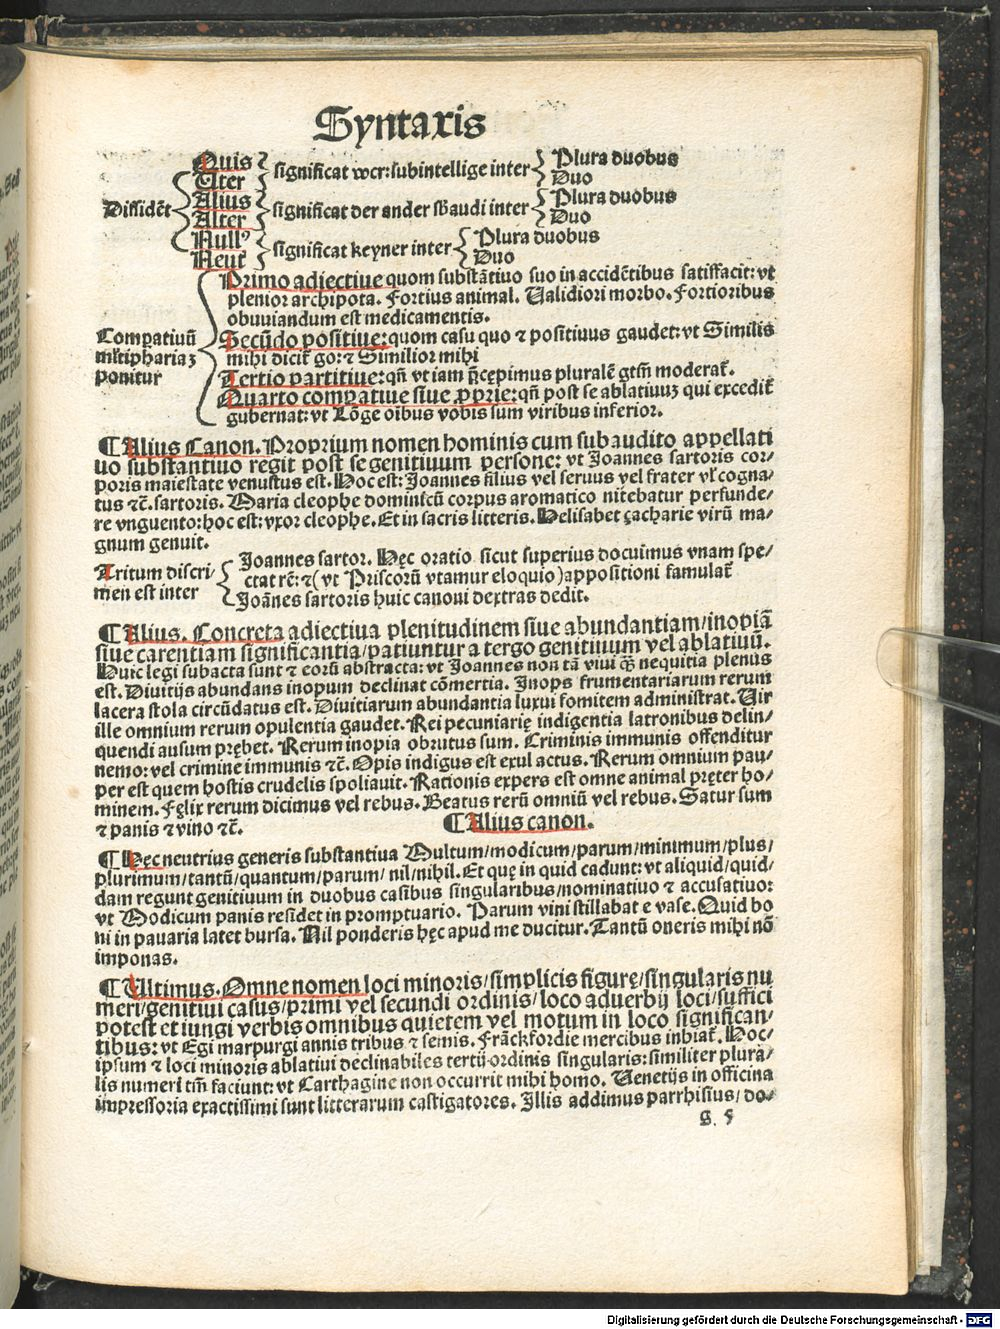 Syntaxis
Quis
Uter
significat wer: subintellige inter
Plura duobus
Duo
Dissidēt
Alius
Alter
significat der ander sbaudi inter
Plura duobus
Duo
Nullꝰ
Neut̄
significat keyner inter
Plura duobus
Duo
Comꝑatiuū
mltiphariaꝫ
ponitur
Primo adiectiue quom substātiuo suo in accidētibus satisfacit: vt
plenior archipota. Fortius animal. Ualidiori morbo. Fortioribus
obuuiandum est medicamentis.
Secūdo positiue: quom casu quo ⁊ positiuus gaudet: vt Similis
mihi dicit̄ go: ⁊ Similior mihi
Tertio partitiue: qn̄ vt iam p̄cępimus pluralē gtm̄ moderat̄.
Quarto comꝑatiue siue ꝓprie: qn̄ post se ablatiuuꝫ qui excedit̄
gubernat: vt Lōge oibus vobis sum viribus inferior.
¶ Alius Canon. Proprium nomen hominis cum subaudito appellati
uo substantiuo regit post se genitiuum persone: vt Joannes sartoris cor⸗
poris maiestate venustus est. Hoc est: Joannes filius vel seruus vel frater vl̄ cogna⸗
tus ⁊c̄. sartoris. Maria cleophe dominicū corpus aromatico nitebatur perfunde⸗
re vnguento: hoc est: vxor cleophe. Et in sacris litteris. Helisabet çacharie virū ma⸗
gnum genuit.
Tritum discri⸗
men est inter
Joannes sartor. Hęc oratio sicut superius docuimus vnam spe⸗
ctat rē: ⁊ (vt Priscorū vtamur eloquio) appositioni famulat̄
Joānes sartoris huic canoni dextras dedit.
¶ Alius. Concreta adiectiua plenitudinem siue abundantiam/inopiā
siue carentiam significantia/patiuntur a tergo genitiuum vel ablatiuū.
Huic legi subacta sunt ⁊ eorū abstracta: vt Joannes non tā viui q̄ꝫ nequitia plenus
est. Diuitijs abundans inopum declinat cōmertia. Inops frumentariarum rerum
lacera stola circūdatus est. Diuitiarum abundantia luxui fomitem administrat. Uir
ille omnium rerum opulentia gaudet. Rei pecuniarię indigentia latronibus delin⸗
quendi ausum prębet. Rerum inopia obrutus sum. Criminis immunis offenditur
nemo: vel crimine immunis ⁊c̄. Opis indigus est exul actus. Rerum omnium pau⸗
per est quem hostis crudelis spoliauit. Rationis expers est omne animal pręter ho⸗
minem. Fęlix rerum dicimus vel rebus. Beatus rerū omniū vel rebus. Satur sum
⁊ panis ⁊ vino ⁊c̄.
¶ Alius canon.
¶ Hęc neutrius generis substantiua Multum/modicum/parum/minimum/plus/
plurimum/tantū/quantum/parum/ nil/nihil. Et quę in quid cadunt: vt aliquid/quid⸗
dam regunt genitiuum in duobus casibus singularibus/nominatiuo ⁊ accusatiuo:
vt Modicum panis residet in promptuario. Parum vini stillabat e vase. Quid bo
ni in pauaria latet bursa. Nil ponderis hęc apud me ducitur. Tantū oneris mihi nō
imponas.
¶ Ultimus. Omne nomen loci minoris/simplicis figurę/singularis nu
meri/genitiui casus/primi vel secundi ordinis/loco aduerbij loci/suffici
potest et iungi verbis omnibus quietem vel motum in loco significan⸗
tibus: vt Egi marpurgi annis tribus ⁊ semis. Frāckfordie mercibus inhiat̄. Hoc⸗
ipsum ⁊ loci minoris ablatiui declinabiles tertij ordinis singularis: similiter plura⸗
lis numeri tm̄ faciunt: vt Carthagine non occurrit mihi homo. Uenetijs in officina
impressoria exactissimi sunt litterarum castigatores. Illis addimus parrhisius/ do⸗
S. 5
Digitalisierung gefördert durch die Deutsche Forschungsgemeinschaft - DFG